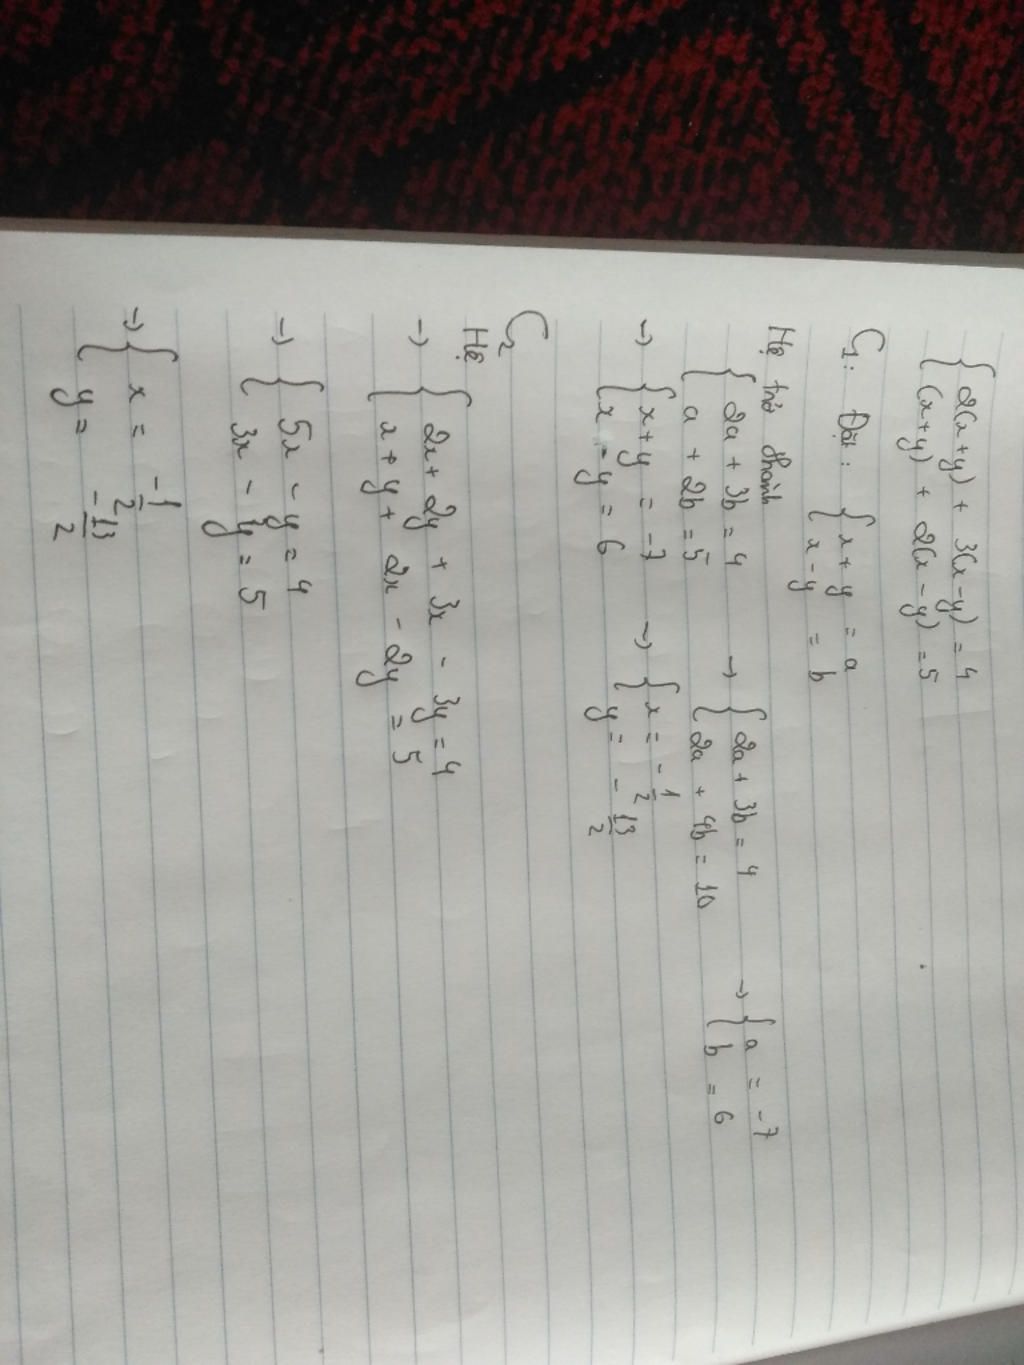 { 2(x+y) + 3(x-y) = 4
(x+y) + 2(x-y) = 5
C1: Đặt: { x+y = a
x-y = b
Hệ trở thành
{ 2a + 3b = 4 → { 2a + 3b = 4 → { a = -7
a + 2b = 5 2a + 4b = 10 b = 6
→ { x+y = -7 → { x = -1/2
x-y = 6 y = -13/2
C2
Hệ
→ { 2x + 2y + 3x - 3y = 4
x + y + 2x - 2y = 5
→ { 5x - y = 4
3x - y = 5
→ { x = -1/2
y = -13/2